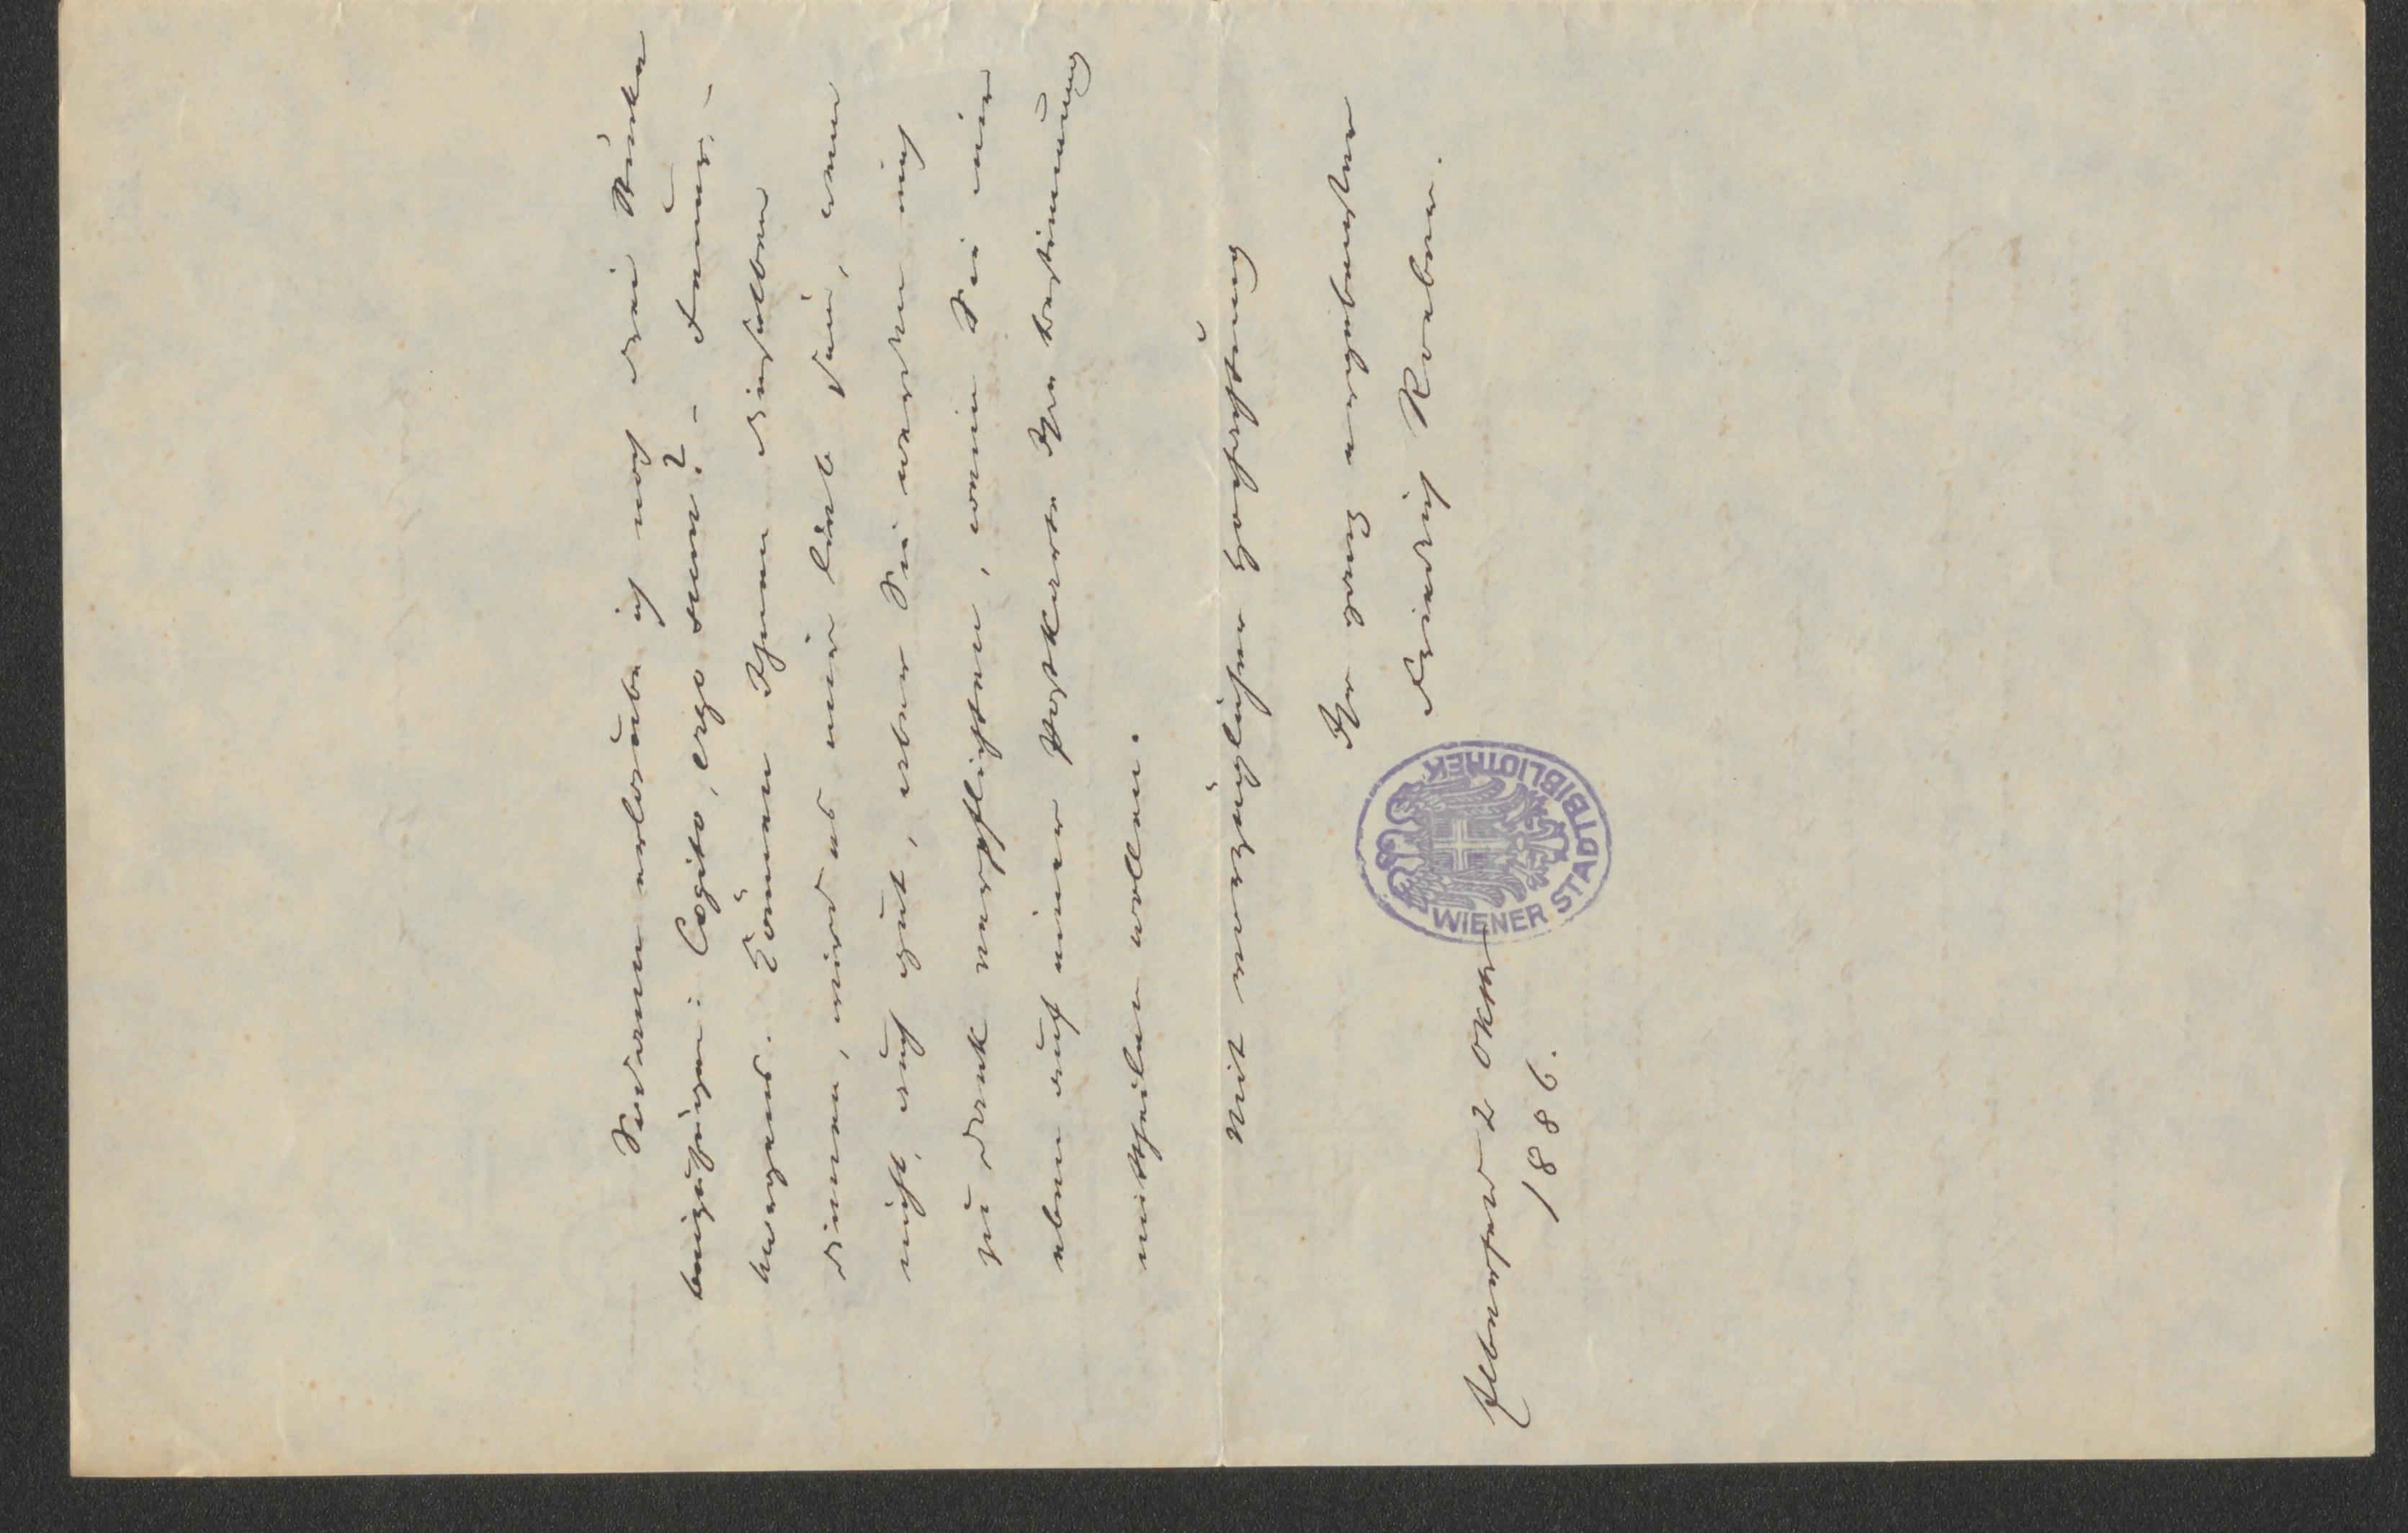 Sodann erlaube ich noch drei Stücke
beizufügen: Cogito, ergo sum? – Dauer. –
Können Ihnen dieselben
dienen, wird es mir lieb sein, wenn
nicht, auch gut, aber Sie werden mich
zu Dank verpflichten, wenn Sie mir
eben auf einer Postkarte Ihre Bestimmung
mittheilen wollen.
Mit vorzüglicher Hochachtung
Ihr ganz ergebenster
Friedrich
2 Oktbr
1886.
WIENER STADTBIBLIOTHEK